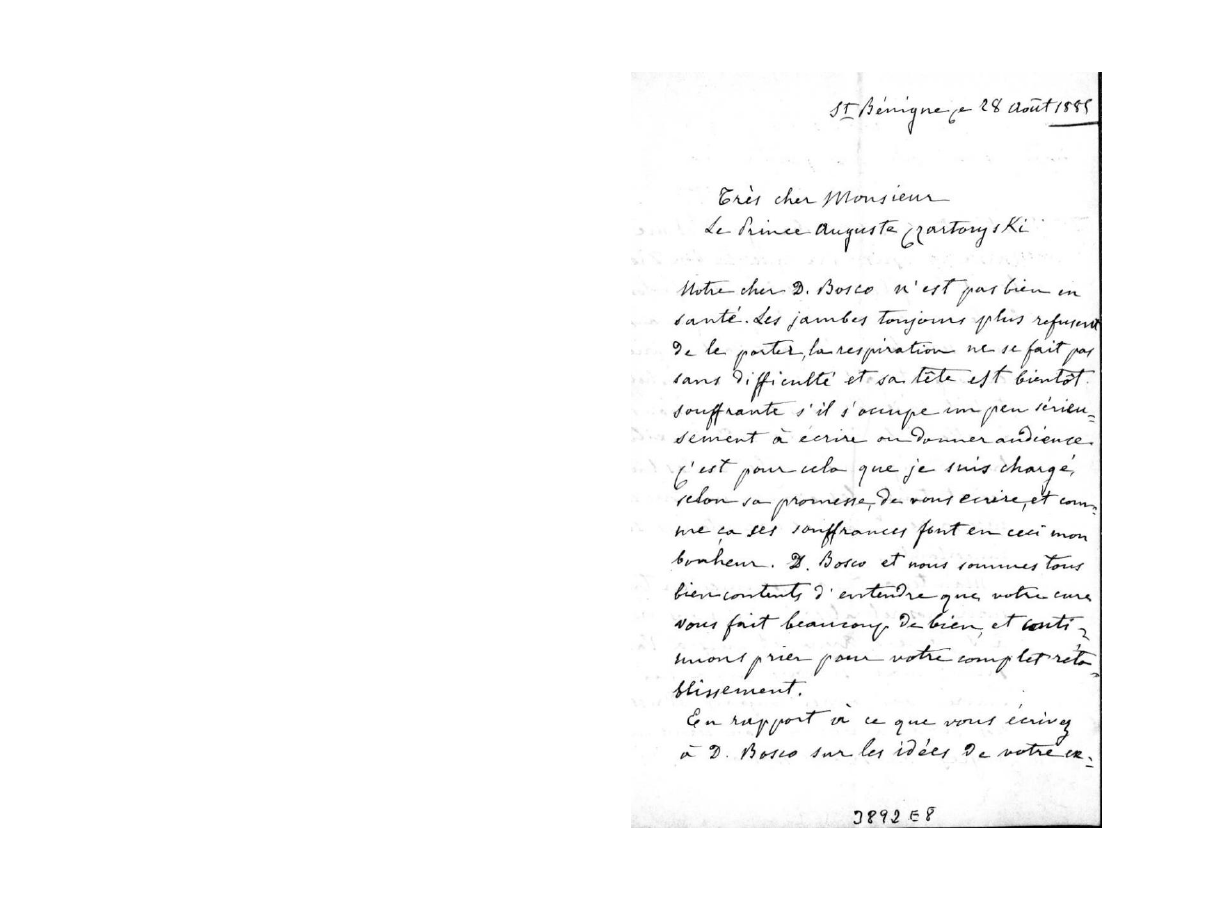 St Bénigne ce 28 Août 1885
Très cher Monsieur
Le Prince Auguste Czartoryski
Notre cher D. Bosco n'est pas bien en
santé. Les jambes toujours plus refusent
de le porter, la respiration ne se fait pas
sans difficulté et sa tête est bientôt
souffrante s'il s'occupe un peu sérieu=
sement à ecrire ou donner audience.
C'est pour cela que je suis chargé,
selon sa promesse, de vous ecrire, et com=
me ça ses souffrances font en ceci mon
bonheur. D. Bosco et nous sommes tous
bien contents d'entendre que votre cure
vous fait beaucoup de bien, et conti=
nuons prier pour votre complet réta=
blissement.
En rapport à ce que vous écrivez
à D. Bosco sur les idées de votre ex=
3892 E8